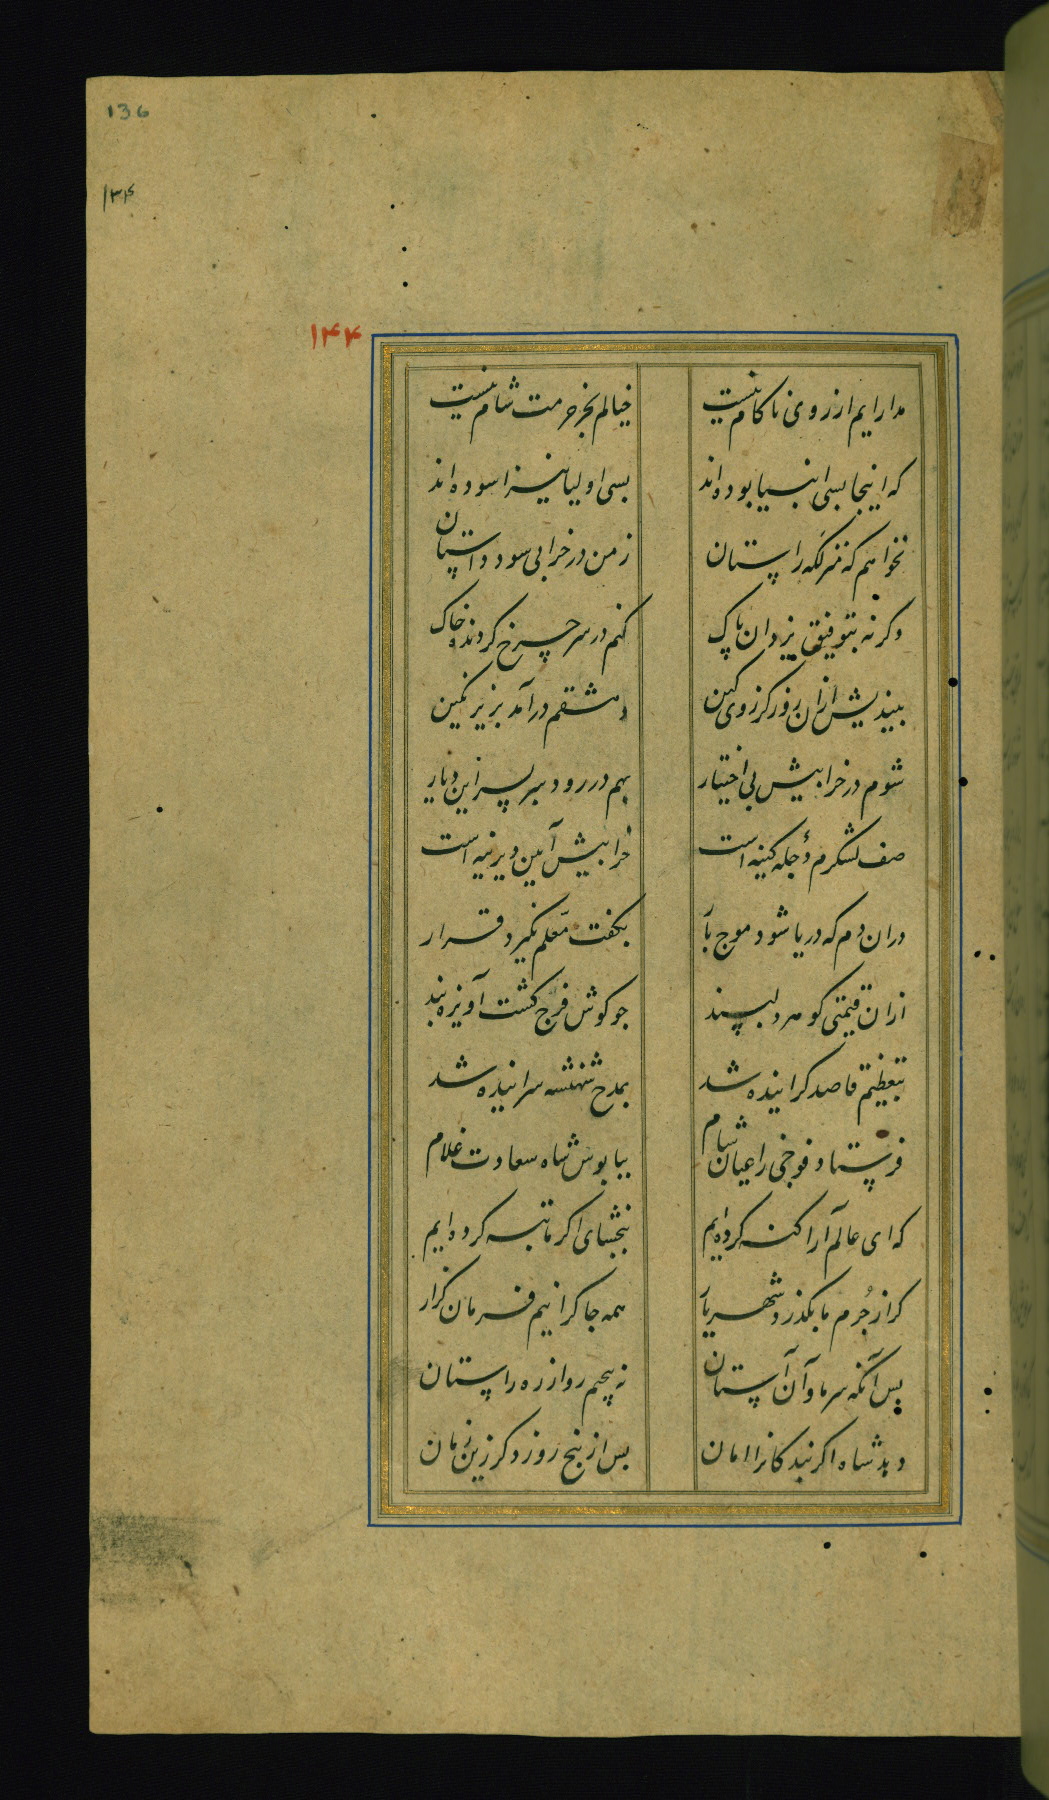 136
۱۳۴
۱۴۴
مدارایم از روی ناکام نیست خیالم بجز حرمت شام نیست
که اینجا بسی انبیا بوده‌اند بسی اولیا نیز اسوده‌اند
نخواهم که را ستان ز من در خرابی سود داستان
وکرنه بتوفیق یزدان پاک کنم در سر چرخ کردنده خاک
بیندیش ازان روز کز روی کین دمشقم درآمد بزیر نکین
شوم در خرابیش بی اختیار بهم در رود سربسر این دیار
صف لشکرم دجله کینه است خرابیش آیین دیرینه است
دران دم که دریا شود موج بار بکفت معلم نکیرد قرار
ازان قیمتی کوهر دلپسند جو کوش فرج کشت آویزه بند
بتعظیم قاصد کراینده شد بمدح شهنشه سراینده شد
فرستاد فوجی ز اعیان شام بپابوس شاه سعادت غلام
که ای عالم آرا کنه کرده‌ایم ببخشای اکر ما تبه کرده‌ایم
کر از جُرم ما بکذرد شهریار همه جاکرانیم فرمان کزار
بس آنکه سر ما و آن آستان نه پیچیم رو از ره راستان
دهد شاه اکر بندکانرا امان بس از بنج روز دکر زین زمان